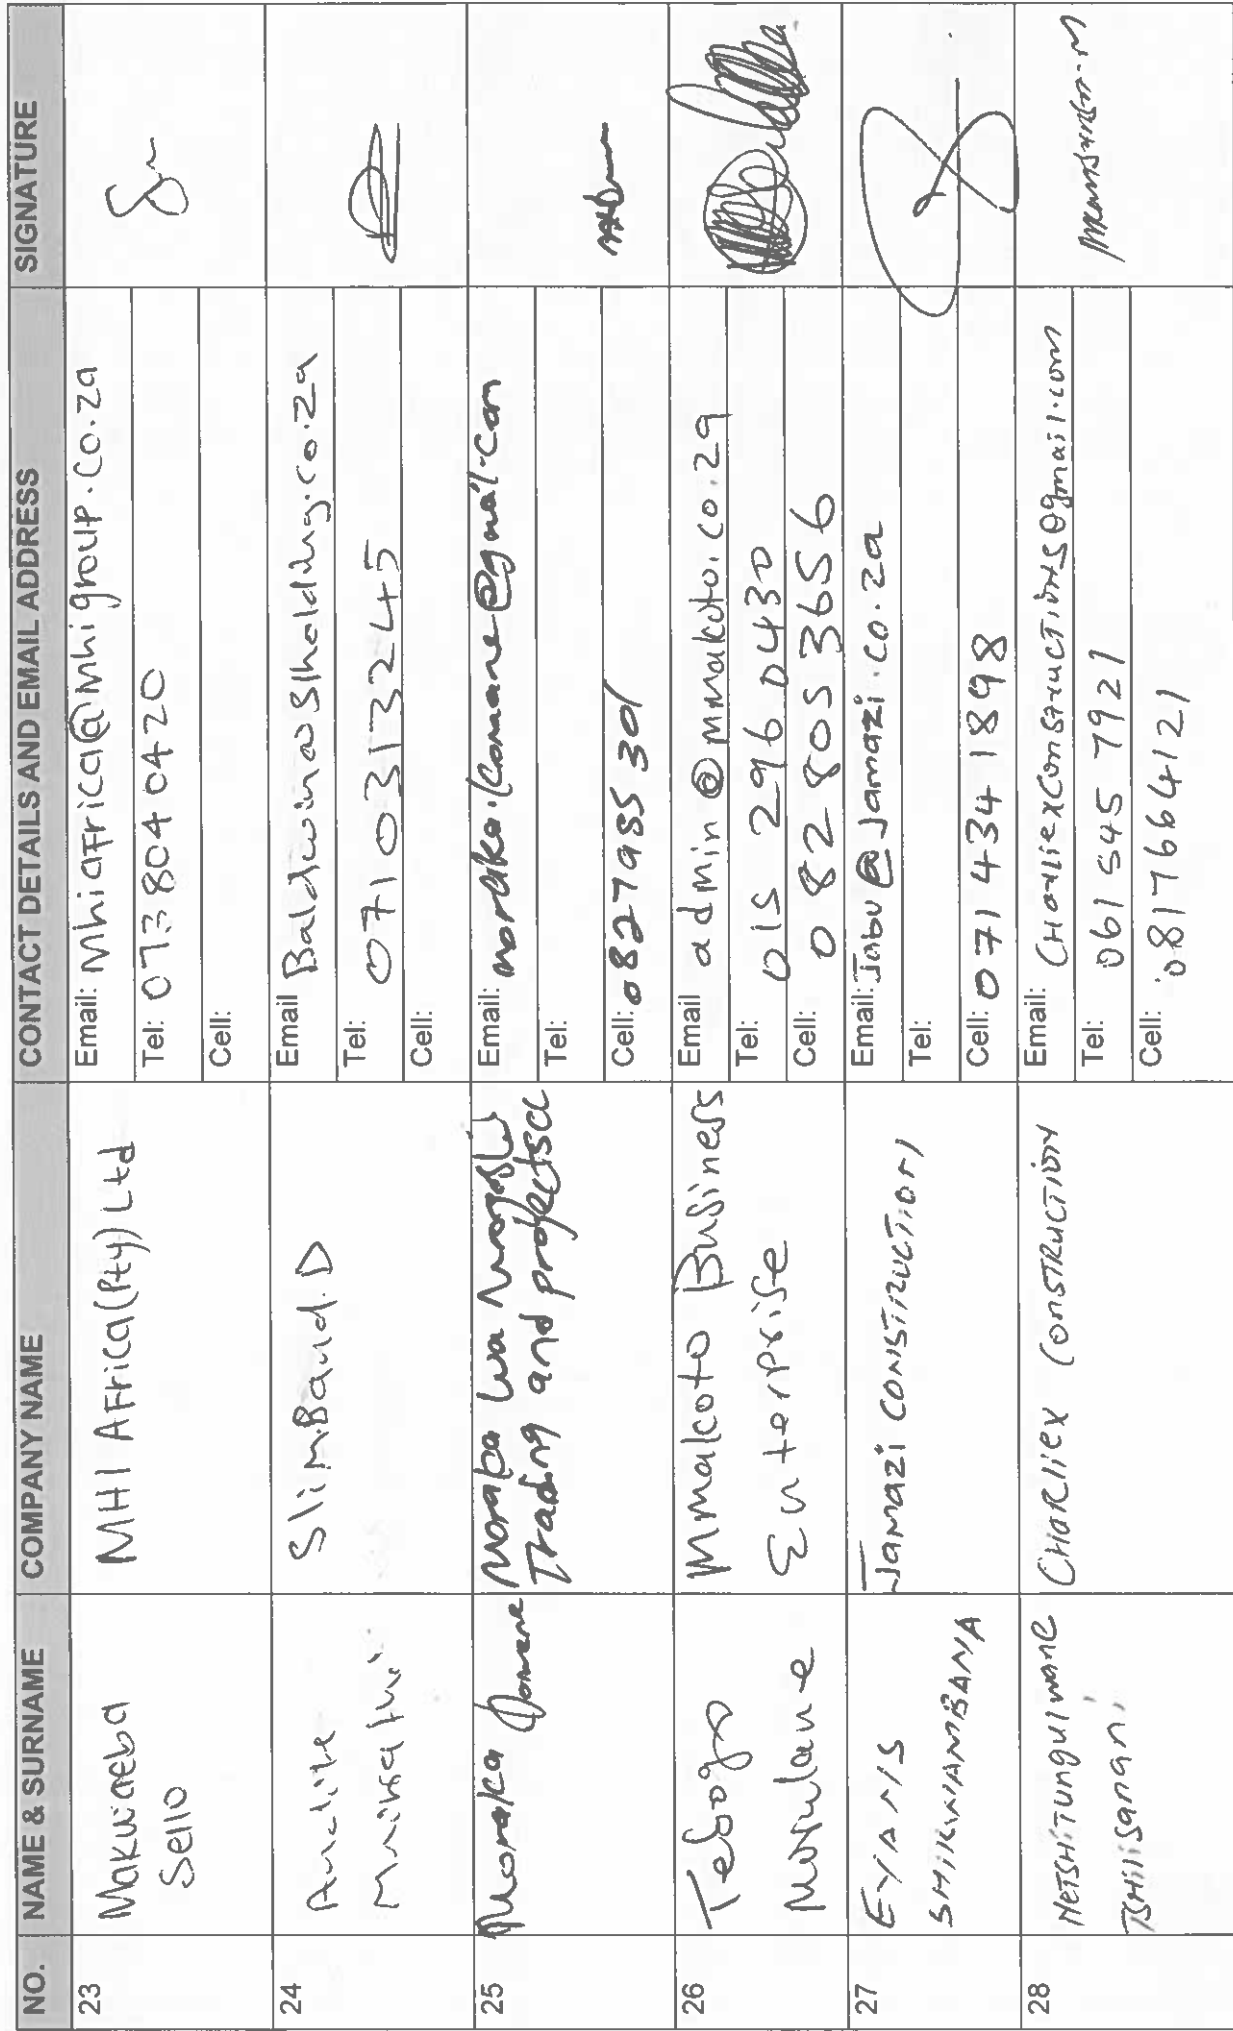 NO.
NAME & SURNAME
COMPANY NAME
CONTACT DETAILS AND EMAIL ADDRESS
SIGNATURE
23
Makwaeba
Sello
MHI AFrica (Pty) Ltd
Email: MhiaFrica@Mhigroup.co.za
Tel: 073 804 0420
Cell:
24
Slim Band. D
Email
Tel: 0710313245
Cell:
25
Moraka
Trading and projects cc
Email:
Tel:
Cell: 0827985301
26
Tebogo
Mmakoto Business
Enterprise
Email admin@mmakoto.co.za
Tel: 015 296 0430
Cell: 082 805 3656
27
EVANS
SHIKWAMBANA
Jamazi CONSTRUCTION
Email: Jabu@Jamazi.co.za
Tel:
Cell: 071 434 1898
28
NETSHITUNGULWANE
TSHILISANANI
CHARLIEX CONSTRUCTION
Email: CHARLIEXCONSTRUCTIONS@gmail.com
Tel: 061 545 7921
Cell: 0817664121